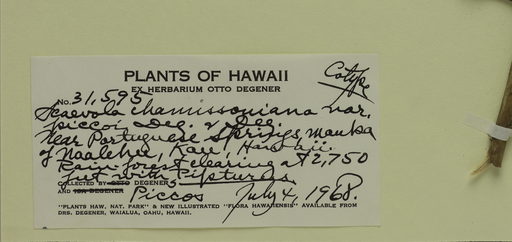 Cotype
PLANTS OF HAWAII
EX HERBARIUM OTTO DEGENER
No. 31,595
Scaevola chamissoniana var.
piccoi Deg. & Deg.
Near Portuguese Springs, mauka
of Naalehu, Kau, Hawaii.
Rainforest clearing at 2,750
feet with Pipturus
COLLECTED BY OTTO DEGENERS
AND ISA DEGENER Piccos July 4, 1968.
"PLANTS HAW. NAT. PARK" & NEW ILLUSTRATED "FLORA HAWAIIENSIS" AVAILABLE FROM
DRS. DEGENER, WAIALUA, OAHU, HAWAII.